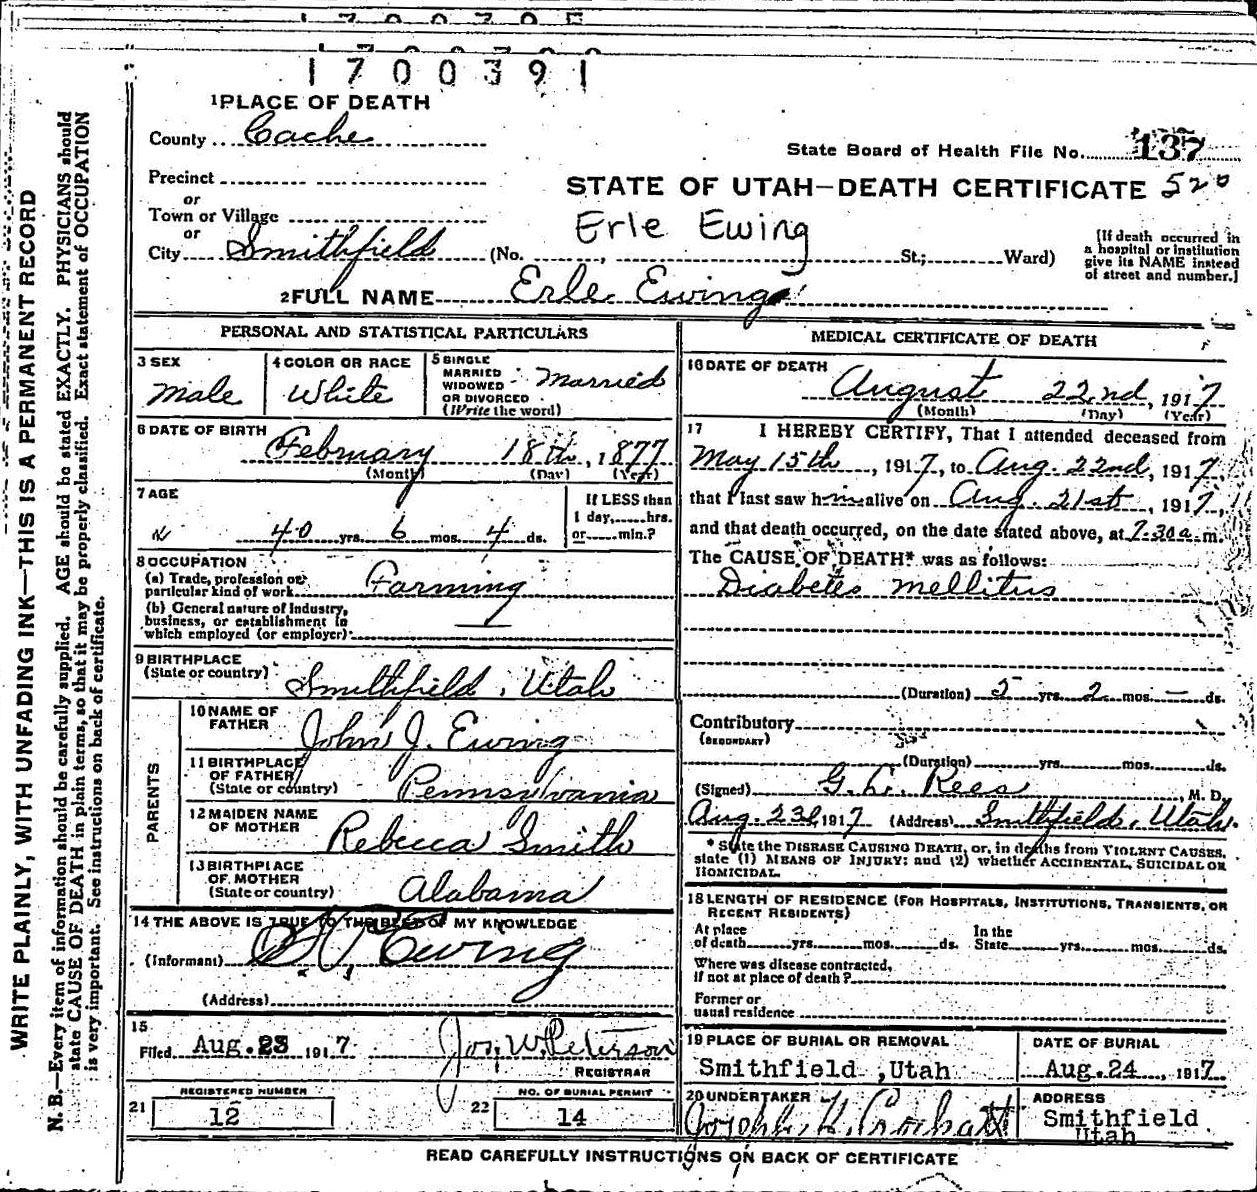 1700391
1 PLACE OF DEATH
County Cache
State Board of Health File No. 137
Precinct
or
STATE OF UTAH—DEATH CERTIFICATE 520
Town or Village
Erle Ewing
or
City Smithfield (No. , St.; Ward)
[If death occurred in
a hospital or institution
give its NAME instead
of street and number.]
2 FULL NAME Erle Ewing
PERSONAL AND STATISTICAL PARTICULARS
3 SEX
Male
4 COLOR OR RACE
White
5 SINGLE
MARRIED
WIDOWED
OR DIVORCED
(Write the word)
Married
6 DATE OF BIRTH
February 18th, 1877
(Month) (Day) (Year)
7 AGE
40 yrs. 6 mos. 4 ds.
If LESS than
1 day, hrs.
or min.?
8 OCCUPATION
(a) Trade, profession or
particular kind of work Farming
(b) General nature of Industry,
business, or establishment in
which employed (or employer)
9 BIRTHPLACE
(State or country)
Smithfield, Utah
PARENTS
10 NAME OF
FATHER
John J. Ewing
11 BIRTHPLACE
OF FATHER
(State or country) Pennsylvania
12 MAIDEN NAME
OF MOTHER
Rebecca Smith
13 BIRTHPLACE
OF MOTHER
(State or country) Alabama
14 THE ABOVE IS TRUE TO THE BEST OF MY KNOWLEDGE
(Informant) Ewing
(Address)
15
Filed Aug. 23 1917 Jos. W. Peterson
REGISTRAR
REGISTERED NUMBER
21 12
NO. OF BURIAL PERMIT
22 14
MEDICAL CERTIFICATE OF DEATH
16 DATE OF DEATH
August 22nd, 1917
(Month) (Day) (Year)
17 I HEREBY CERTIFY, That I attended deceased from
May 15th, 1917, to Aug. 22nd, 1917,
that I last saw him alive on Aug. 21st, 1917,
and that death occurred, on the date stated above, at 7.30 a.m.
The CAUSE OF DEATH* was as follows:
Diabetes mellitus
(Duration) 5 yrs. 2 mos. — ds.
Contributory
(SECONDARY)
(Duration) yrs. mos. ds.
(Signed) G. L. Rees, M. D.
Aug. 23d, 1917 (Address) Smithfield, Utah.
* State the DISEASE CAUSING DEATH, or, in deaths from VIOLENT CAUSES,
state (1) MEANS OF INJURY; and (2) whether ACCIDENTAL, SUICIDAL OR
HOMICIDAL.
18 LENGTH OF RESIDENCE (FOR HOSPITALS, INSTITUTIONS, TRANSIENTS, OR
RECENT RESIDENTS)
At place
of death yrs. mos. ds.
In the
State yrs. mos. ds.
Where was disease contracted,
if not at place of death?
Former or
usual residence
19 PLACE OF BURIAL OR REMOVAL
Smithfield ,Utah
DATE OF BURIAL
Aug.24, 1917
20 UNDERTAKER
ADDRESS
Smithfield
Utah
READ CAREFULLY INSTRUCTIONS ON BACK OF CERTIFICATE
WRITE PLAINLY, WITH UNFADING INK—THIS IS A PERMANENT RECORD
N. B.—Every item of information should be carefully supplied. AGE should be stated EXACTLY. PHYSICIANS should
state CAUSE OF DEATH in plain terms, so that it may be properly classified. Exact statement of OCCUPATION
is very important. See instructions on back of certificate.